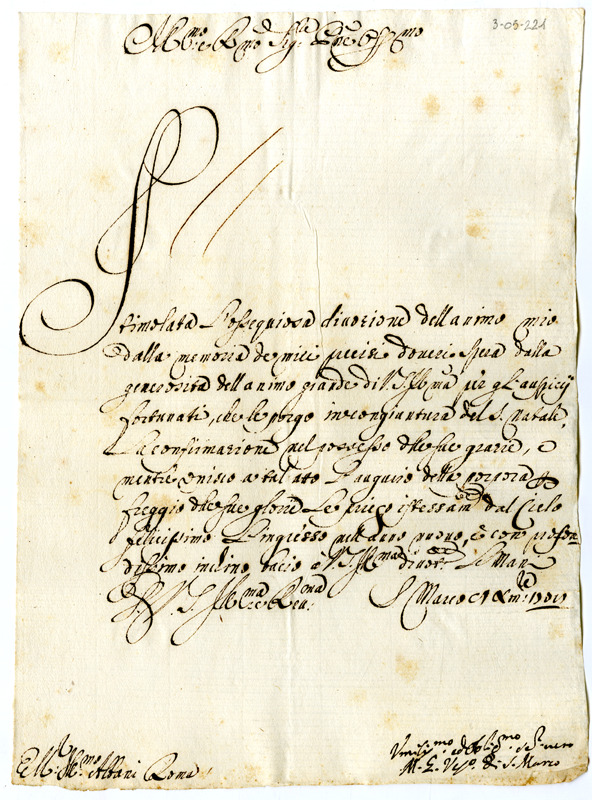 3-05-221
Ill.mo e R.mo Sig.
Stimolata l'ossequiosa divozione dell animo mio
dalla memoria de miei precisi doveri spera dalla
generosità dell animo grande di V. S. Ill.ma per gl'auspicij
fortunati, che le porgo in congiuntura del S. Natale,
La confirmazione nel possesso delle sue grazie, e
mentre unisco a tal atto l'augurio della porpora
freggio delle sue glorie Le prego istessam.te dal Cielo
felicissimo l'ingresso nell'anno nuovo, e con profon
dissimo inclino bacio à V. S. Ill.ma le Man
D. V. S. Ill.ma e Reu.ma
S. Marco
Albani Roma
di S. Marco